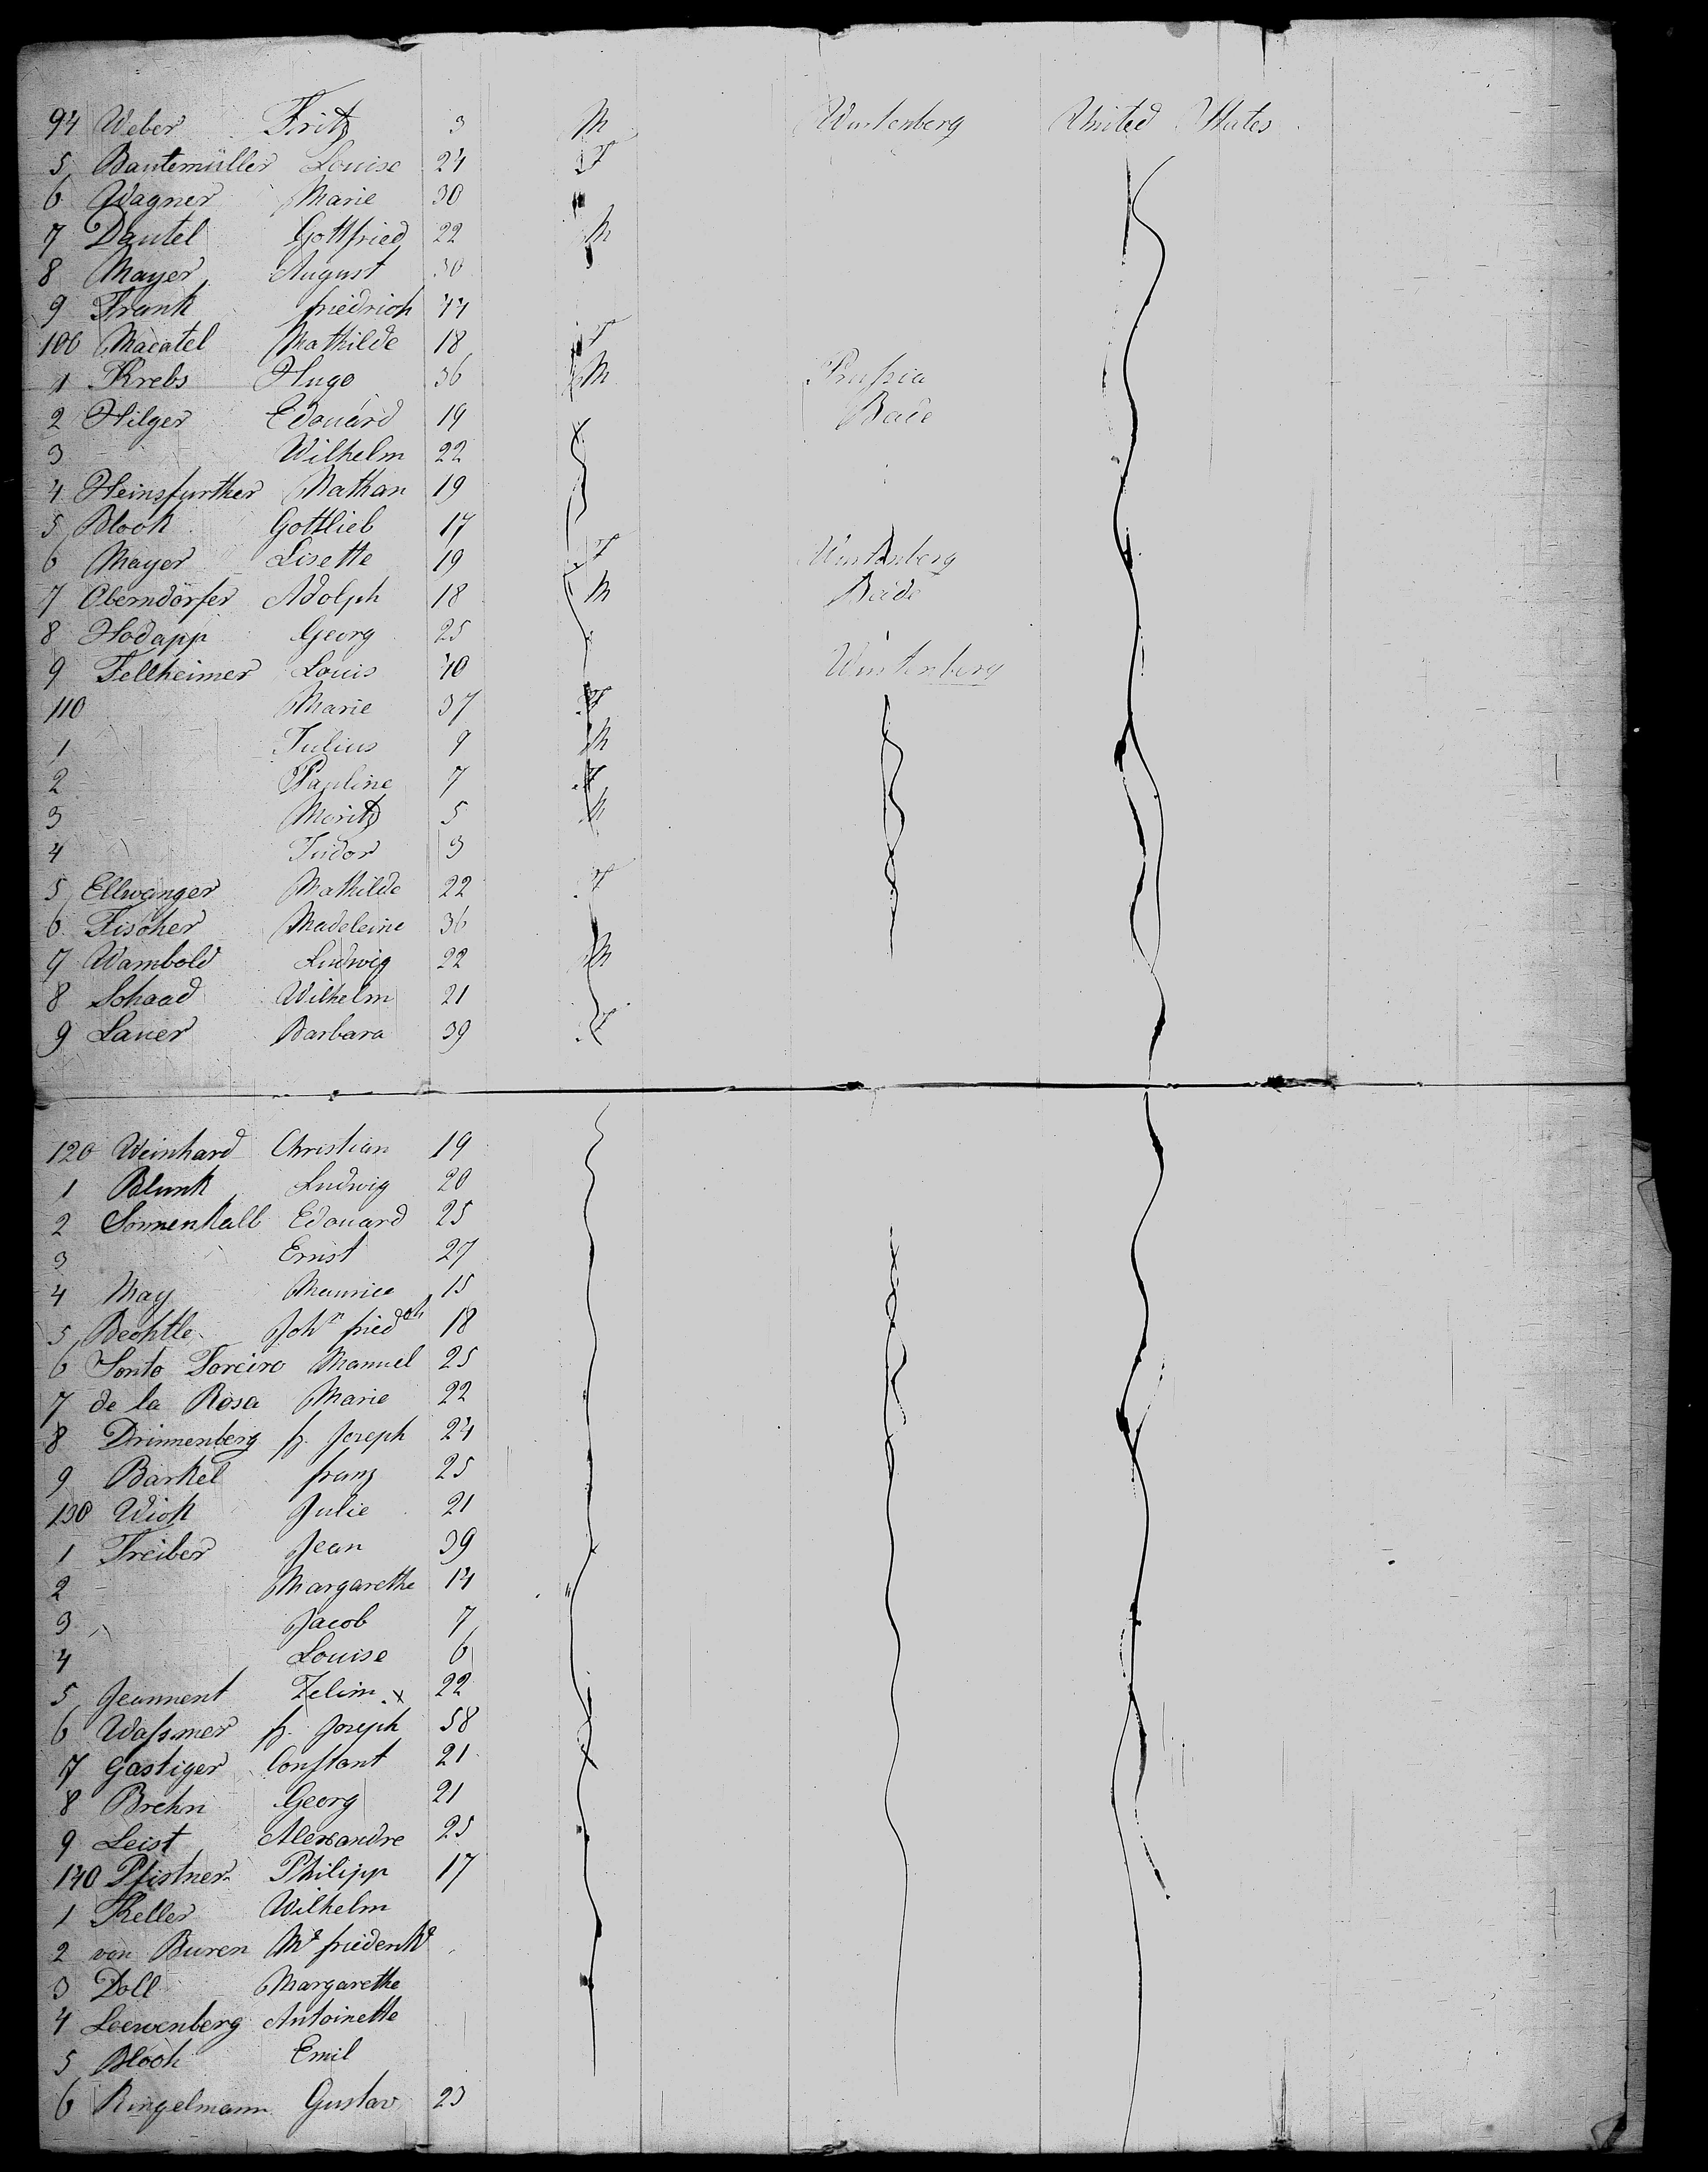 94 Weber Fritz 3 M Wurtenberg United States
5 Bautemüller Louise 24 F
6 Wagner Marie 30 "
7 Dautel Gottfried 22 M
8 Mayer August 30
9 Frank friedrich 44
100 Macatel Mathilde 18 F
1 Krebs Hugo 36 M Prussia
2 Hilger Edouard 19 Bade
3 Wilhelm 22
4 Heinsfurther Nathan 19
5 Bloch Gottlieb 17
6 Mayer Lisette 19 F Wurtenberg
7 Oberndörfer Adolph 18 M Bade
8 Hodapp Georg 25
9 Fellheimer Louis 40 Wurtenberg
110 Marie 37 F
1 Julius 9 M
2 Pauline 7 F
3 Moritz 5 M
4 Isidor 3
5 Ellwanger Mathilde 22 F
6 Fischer Madeleine 36
7 Wambold Ludwig 22 M
8 Schaad Wilhelm 21
9 Lauer Barbara 39 F
120 Weinhard Christian 19
1 Blunk Ludwig 20
2 Sonnenkalb Edouard 25
3 Ernst 27
4 May Maurice 15
5 Bechtle John friedch 18
6 Sonto Foreiro Manuel 25
7 de la Rosa Marie 22
8 Drinnenberg fz. Joseph 24
9 Barkel franz 25
130 Wick Julie 21
1 Treiber Jean 39
2 Margarethe 14
3 Jacob 7
4 Louise 6
5 Jeannent Zelim x 22
6 Wassmer fz. Joseph 58
7 Gastiger Constant 21
8 Brehn Georg 21
9 Leist Alexandre 25
140 Pfistner Philipp 17
1 Keller Wilhelm
2 von Buren
3 Doll Margarethe
4 Leewenberg Antoinette
5 Bloch Emil
6 Ringelmann Gustav 23